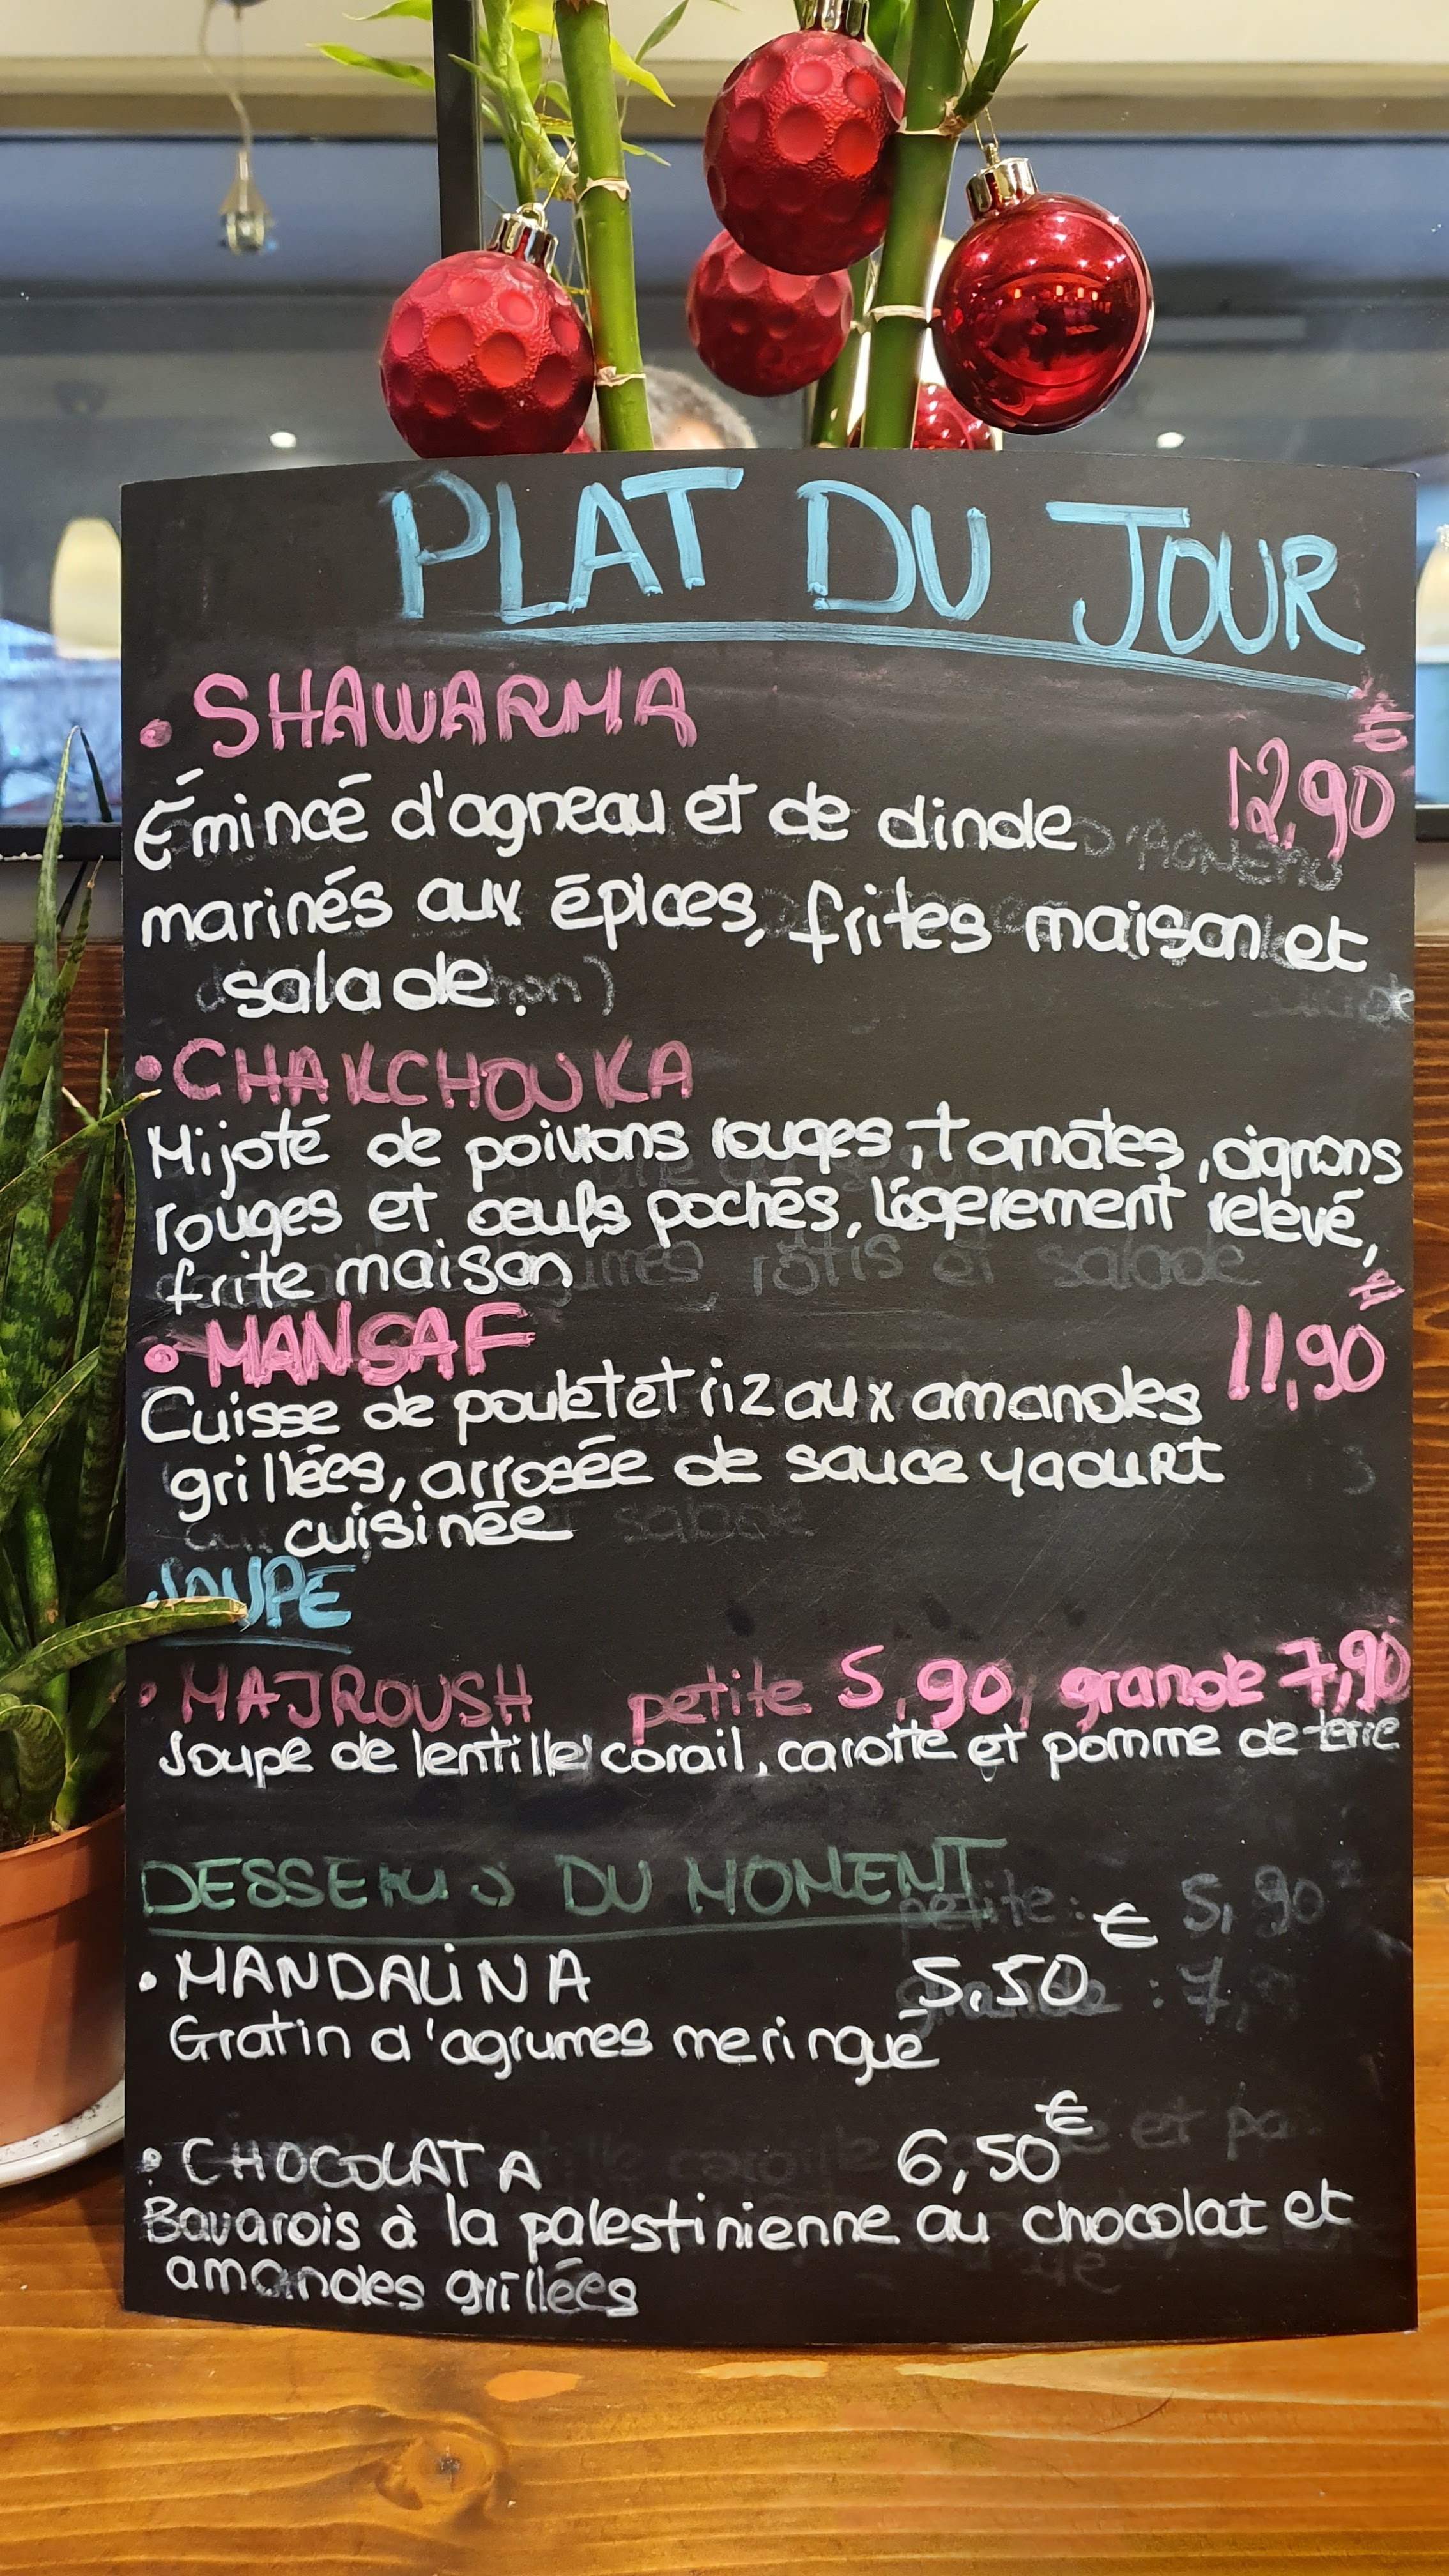 PLAT DU JOUR
• SHAWARMA 12,90 €
Émincé d'agneau et de dinde
marinés aux épices, frites maison et
salade.
• CHAKCHOUKA
Mijoté de poivrons rouges, tomates, oignons
rouges et oeufs pochés, légerement relevé,
frite maison
• MANSAF 11,90 €
Cuisse de poulet et riz aux amandes
grillées, arrosée de sauce yaourt
cuisinée
SOUPE
• MAJROUSH petite 5,90, grande 7,90
Soupe de lentille corail, carotte et pomme de terre
DESSERTS DU MOMENT
petite: 5,90
grande : 7,
• MANDALINA 5,50 €
Gratin d'agrumes meringué
• CHOCOLATA 6,50 €
Bavarois à la palestinienne au chocolat et
amandes grillées